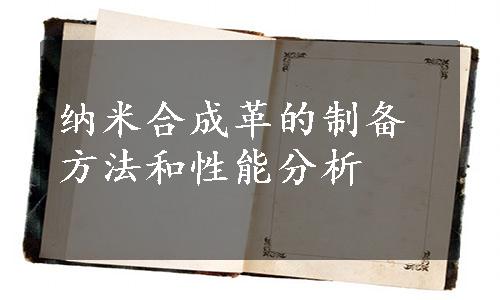 纳米合成革的制备
方法和性能分析